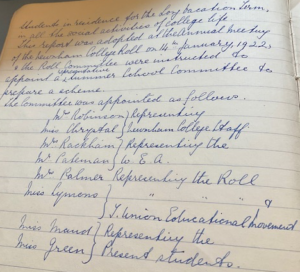 students in residence for the Long Vacation Term.
in all the usual activities of College life
This report was adopted at the Annual Meeting
of the Newnham College Roll on 14th January, 1922,
& the Roll Committee were instructed to
appoint a representative Summer School Committee to
prepare a scheme.
The Committee was appointed as follows.
Mrs Robinson } Representing
Miss Chrystal } Newnham College Staff
Mr Rackham } Representing the
Mr Pateman } W.E.A.
Mrs Palmer Representing the Roll
Miss Symons } " " " &
T. Union Educational Movement
Miss Manod } Representing the
Miss Green } Present students.